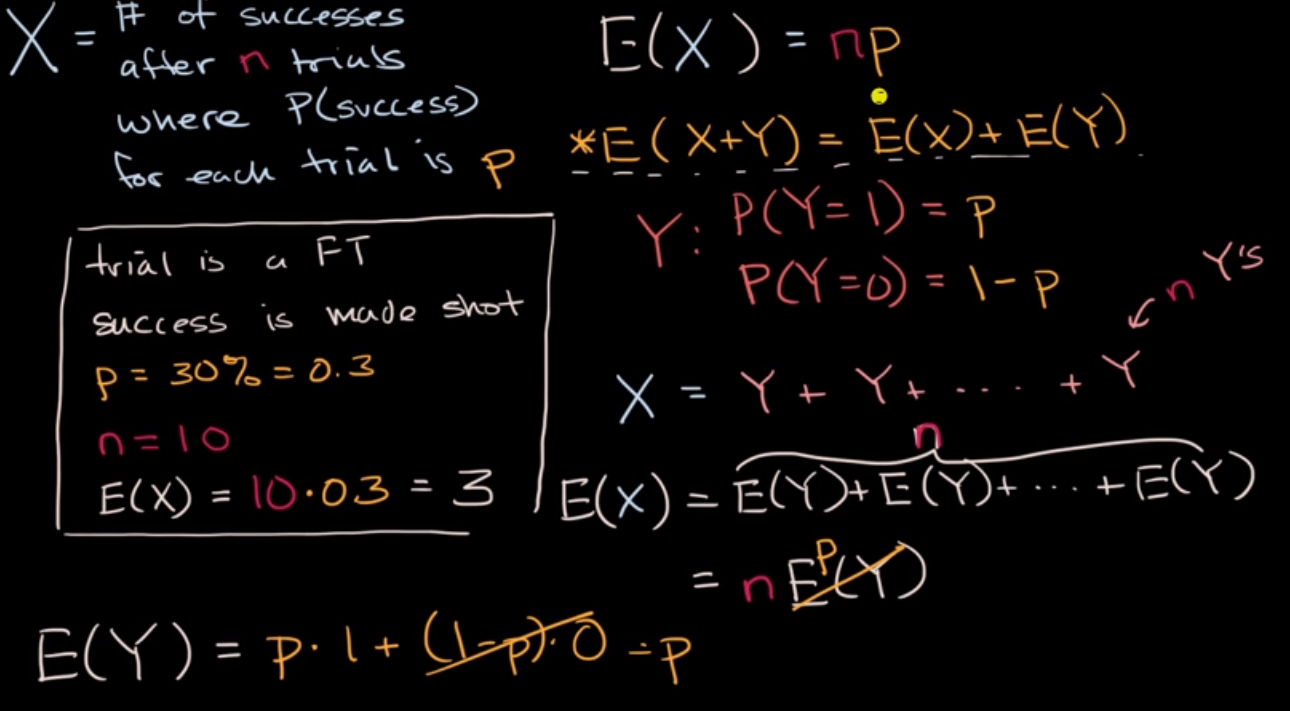 X = # of successes
after n trials
where P(success)
for each trial is p
trial is a FT
success is made shot
p = 30% = 0.3
n = 10
E(X) = 10 · 03 = 3
E(X) = np
*E(X+Y) = E(X) + E(Y)
Y: P(Y=1) = p
P(Y=0) = 1-p
n Y's
X = Y + Y + .... + Y
n
E(X) = E(Y) + E(Y) + ... + E(Y)
= n E(Y) p
E(Y) = p · 1 + (1-p) · 0 = p